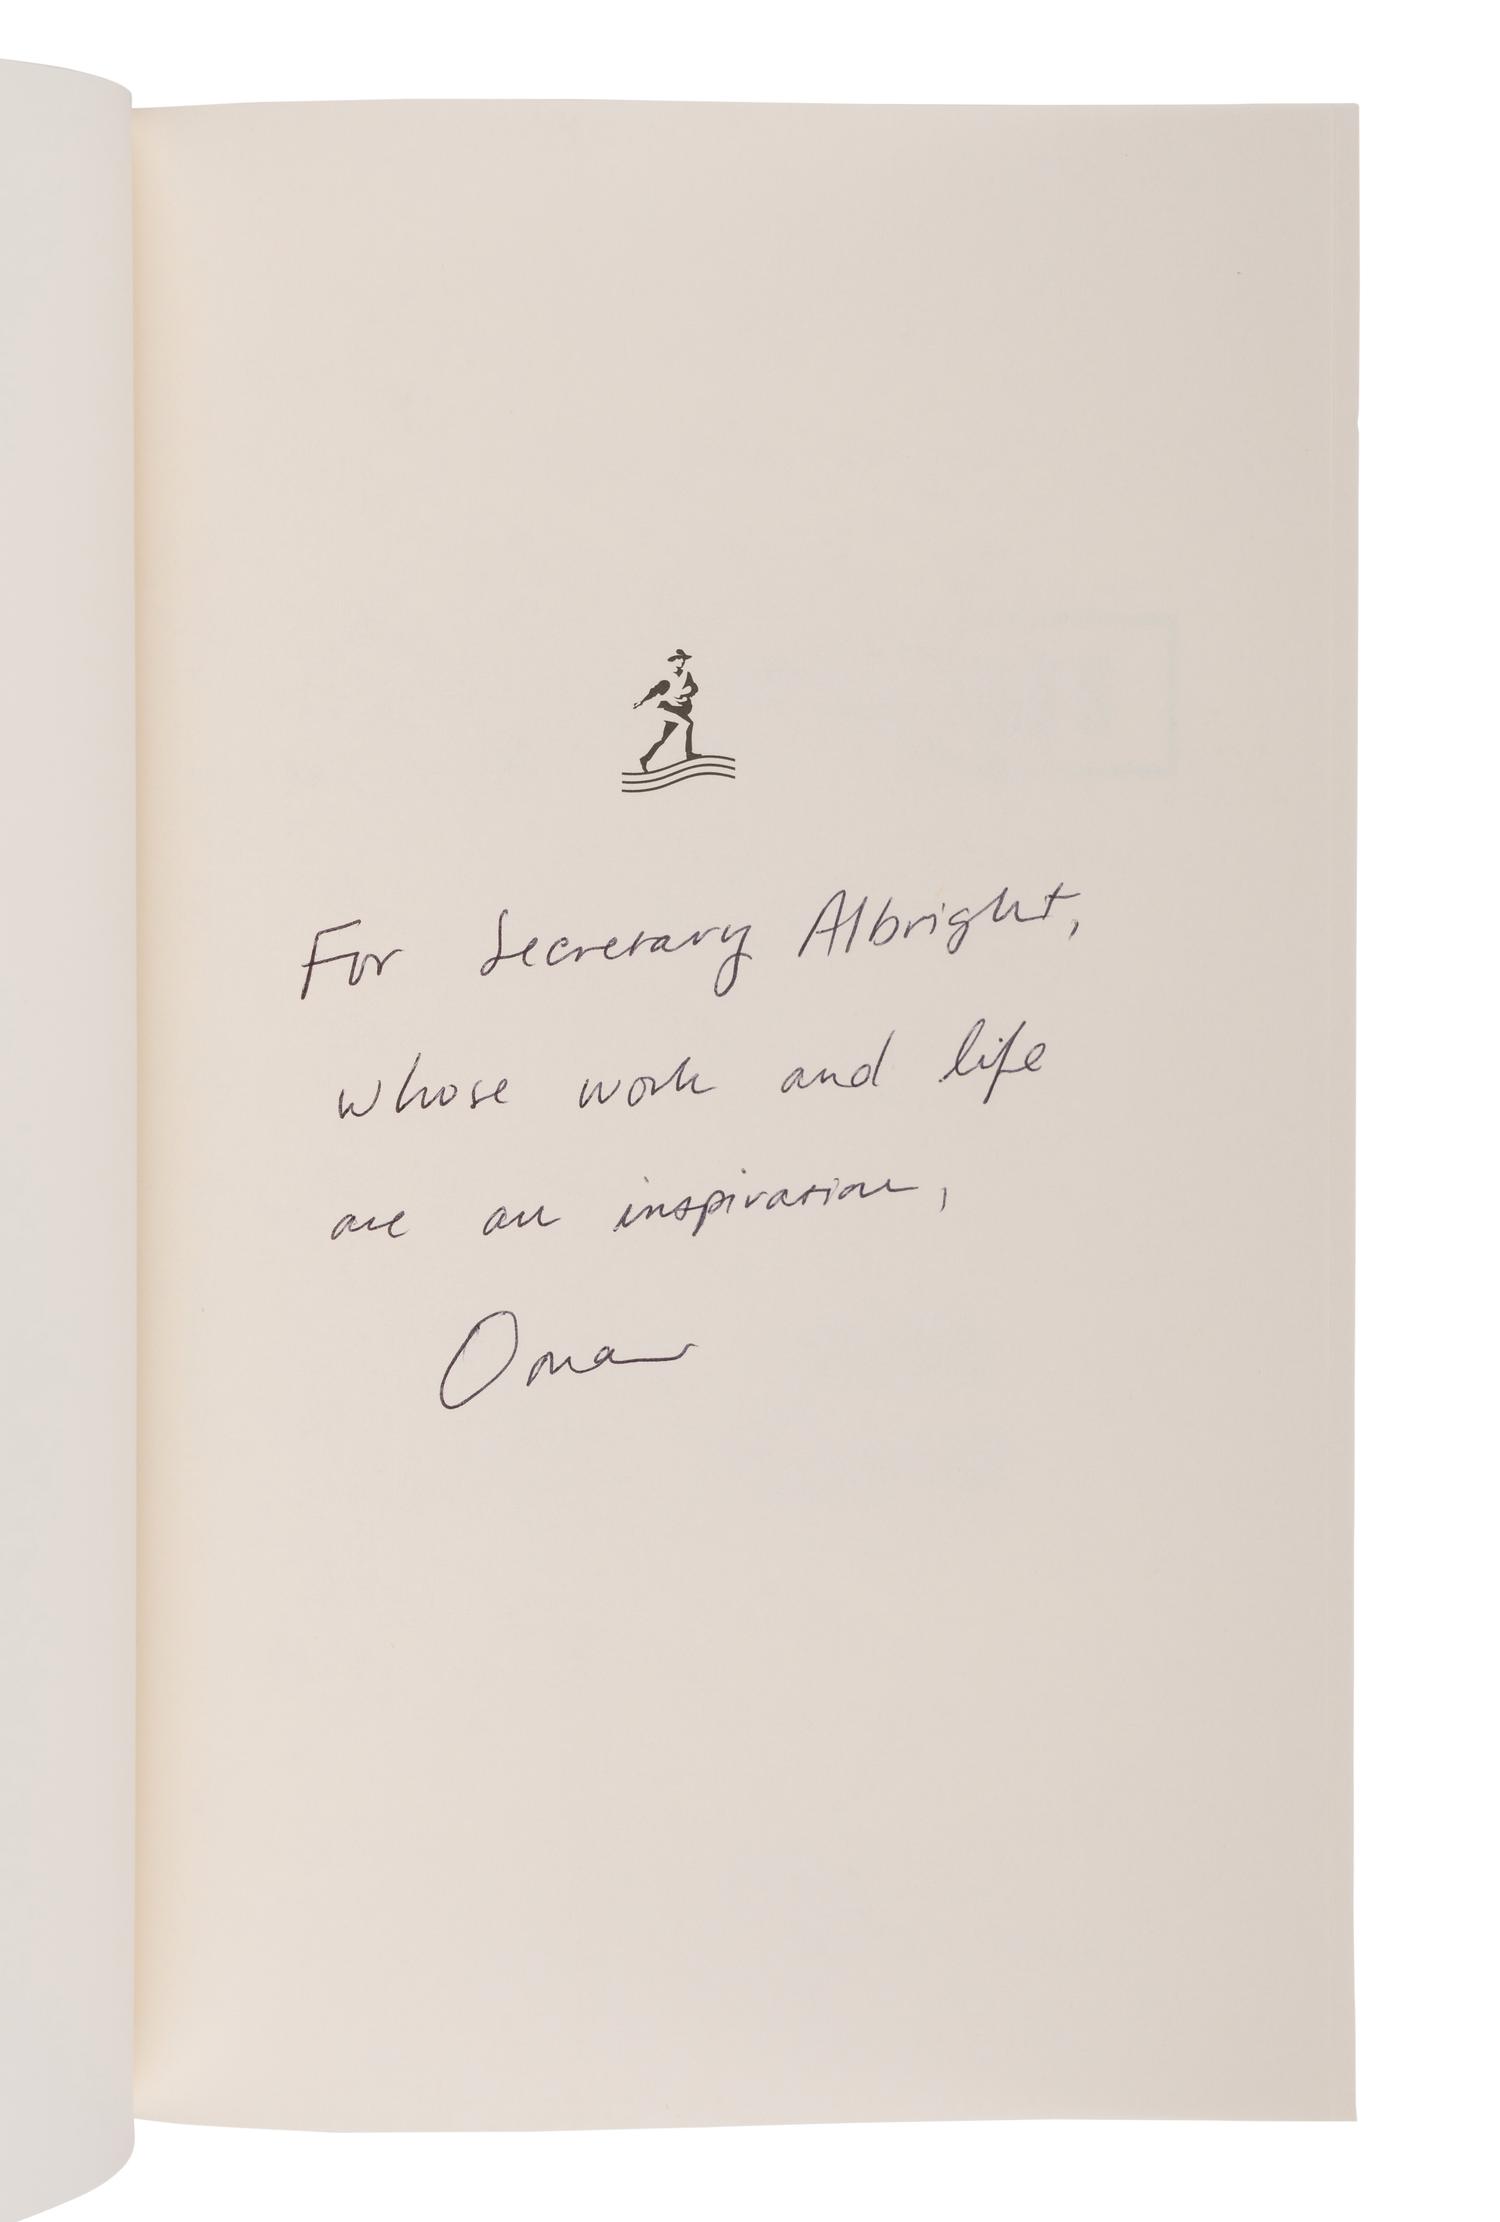 For Secretary Albright,
whose work and life
are an inspiration,
Omar